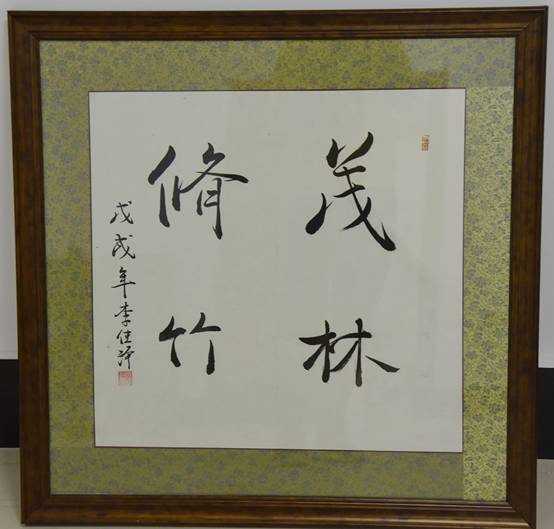 茂林
脩竹
戊戌年李佳